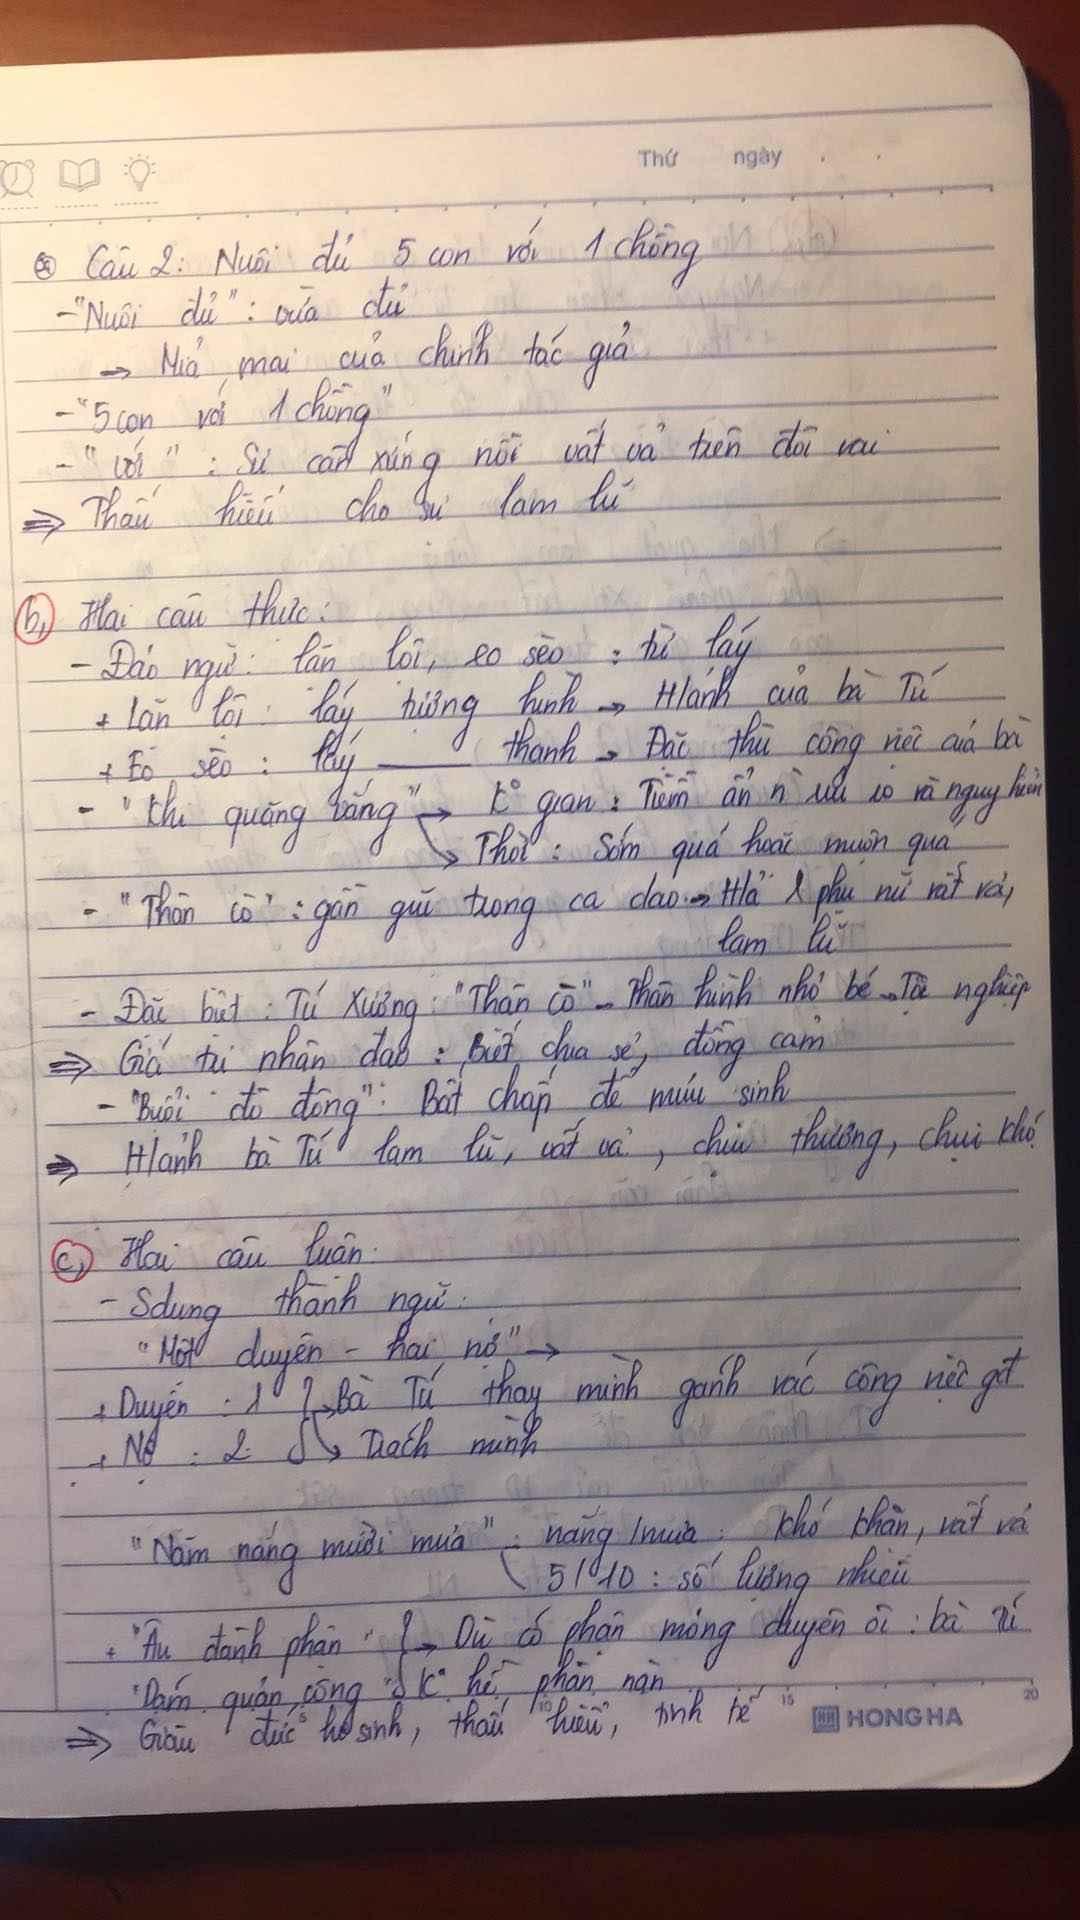 Thứ ngày
Câu 2: Nuôi đủ 5 con với 1 chồng
- "Nuôi đủ": vừa đủ
→ Mỉa mai của chính tác giả
- "5 con với 1 chồng"
- "với": Sự cân xứng nỗi vất vả trên đôi vai
⇒ Thấu hiểu cho sự lam lũ
b, Hai câu thực:
- Đảo ngữ: lặn lội, eo sèo: từ láy
+ Lặn lội: láy tượng hình → H/ảnh của bà Tú
+ Eo sèo: láy ——— thanh → Đặc thù công việc của bà
- "Khi quãng vắng" → K° gian: Tiềm ẩn n rủi ro và nguy hiểm
→ Thời: Sớm quá hoặc muộn quá
- "Thân cò": gần gũi trong ca dao → H/ả phụ nữ vất vả,
lam lũ
- Đặc biệt: Tú Xương: "Thân cò" - Thân hình nhỏ bé → Tội nghiệp
⇒ Giá trị nhân đạo: Biết chia sẻ, đồng cảm
- "Buổi đò đông": Bất chấp để mưu sinh
⇒ H/ảnh bà Tú lam lũ, vất vả, chịu thương, chịu khó
c, Hai câu luận:
- Sdụng thành ngữ:
"Một duyên - hai nợ" →
+ Duyên: 1 } → Bà Tú thay mình gánh vác công việc gđ
+ Nợ: 2 } → Trách mình
"Năm nắng mười mưa": nắng/mưa: khó khăn, vất vả
5/10: số lượng nhiều
+ "Âu đành phận" } → Dù có phận mỏng duyên ôi: bà Tú
"Dám quản công" } K° hề phàn nàn
⇒ Giàu đức hi sinh, thấu hiểu, tinh tế
5 10 15 20
HH HONG HA